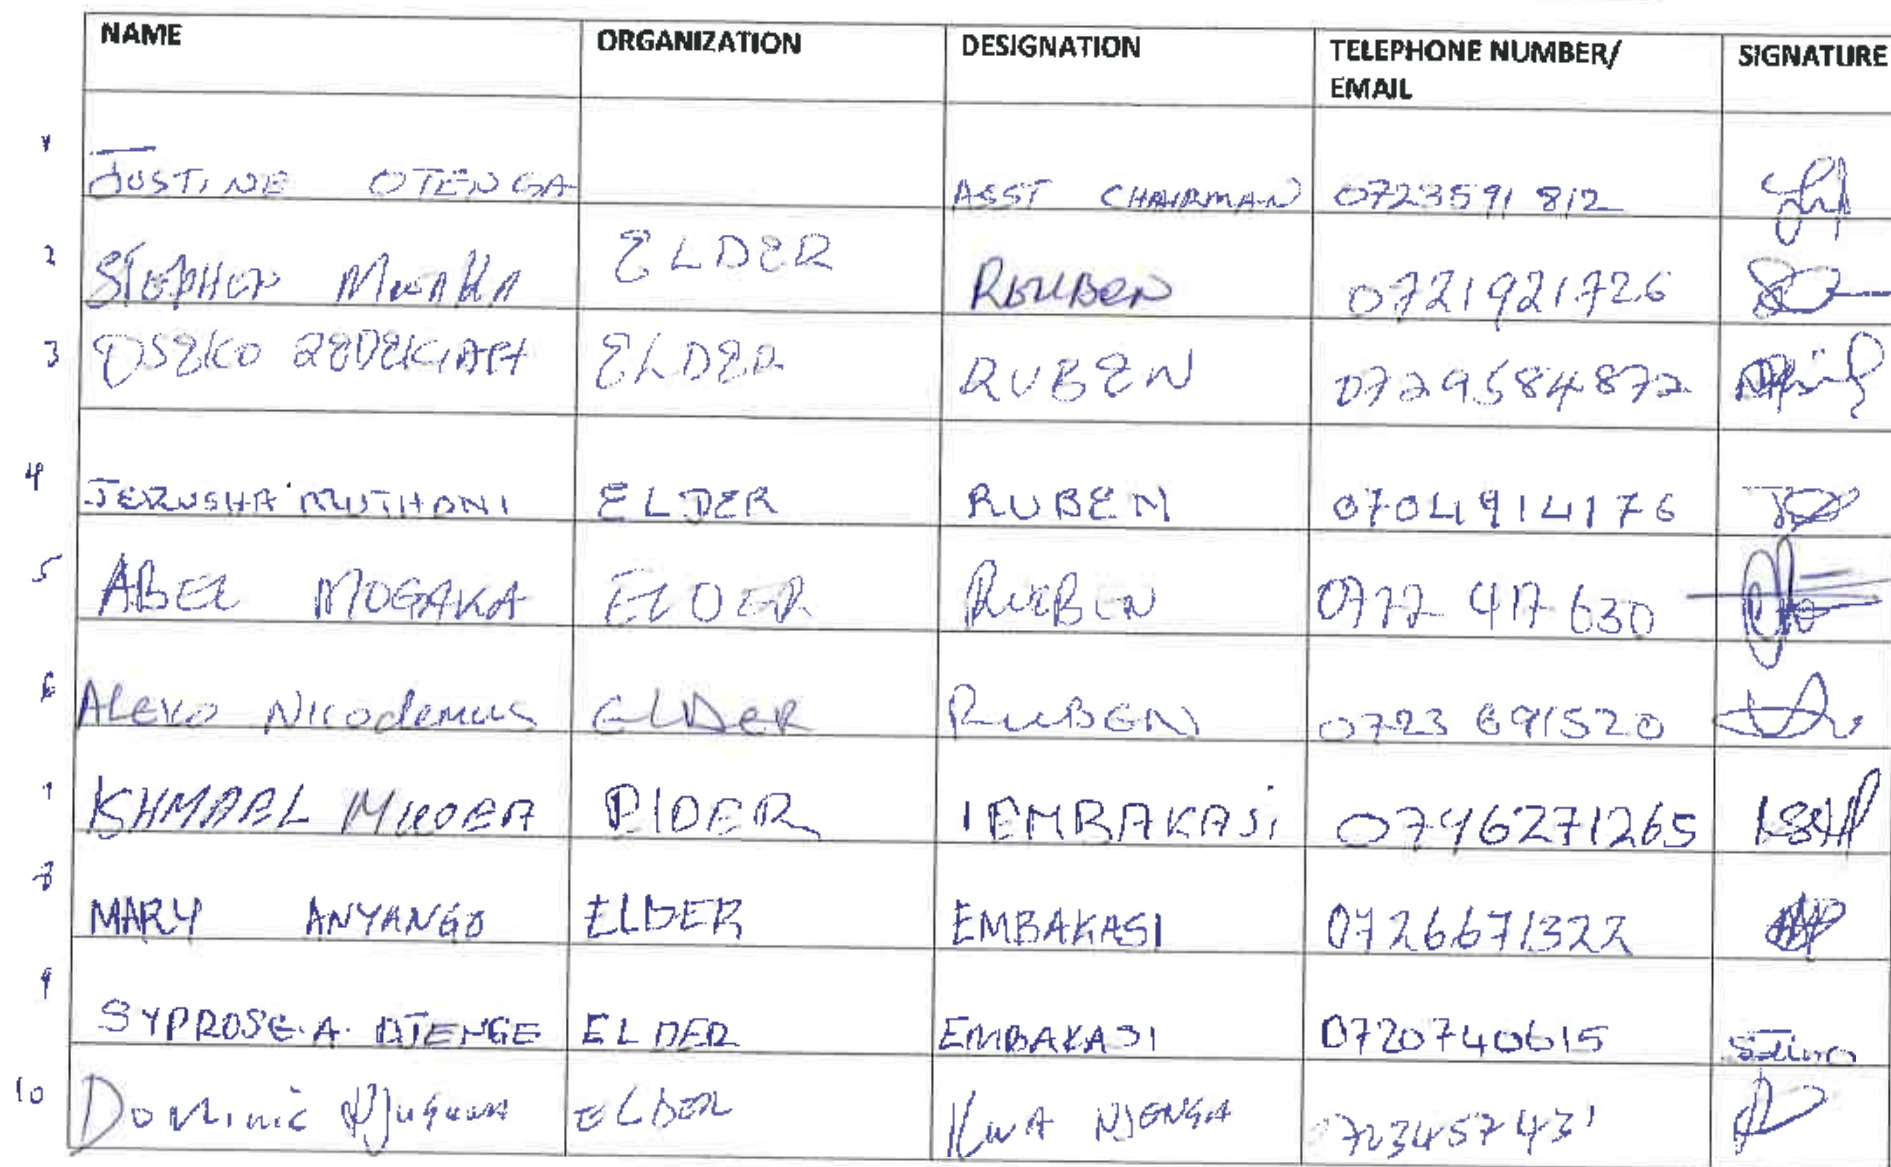 NAME ORGANIZATION DESIGNATION TELEPHONE NUMBER/ EMAIL SIGNATURE
1 JUSTINE OTENGA ASST CHAIRMAN 0723591812
2 STEPHEN ELDER REUBEN 0721921726
3 OSEKO ZEDEKIAH ELDER RUBEN 0729584872
4 JERUSHA MUTHONI ELDER RUBEN 0704914176
5 ABEL MOGAKA ELDER RUEBEN
6 Nicodemus ELDER RUEBEN 0723 691520
7 ELDER EMBAKASi 0746271265
8 MARY ANYANGO ELDER EMBAKASI 0726671322
9 SYPROSE. A. ELDER EMBAKASI 0720740615
10 Dominic ELDER KWA NJENGA 0723457431